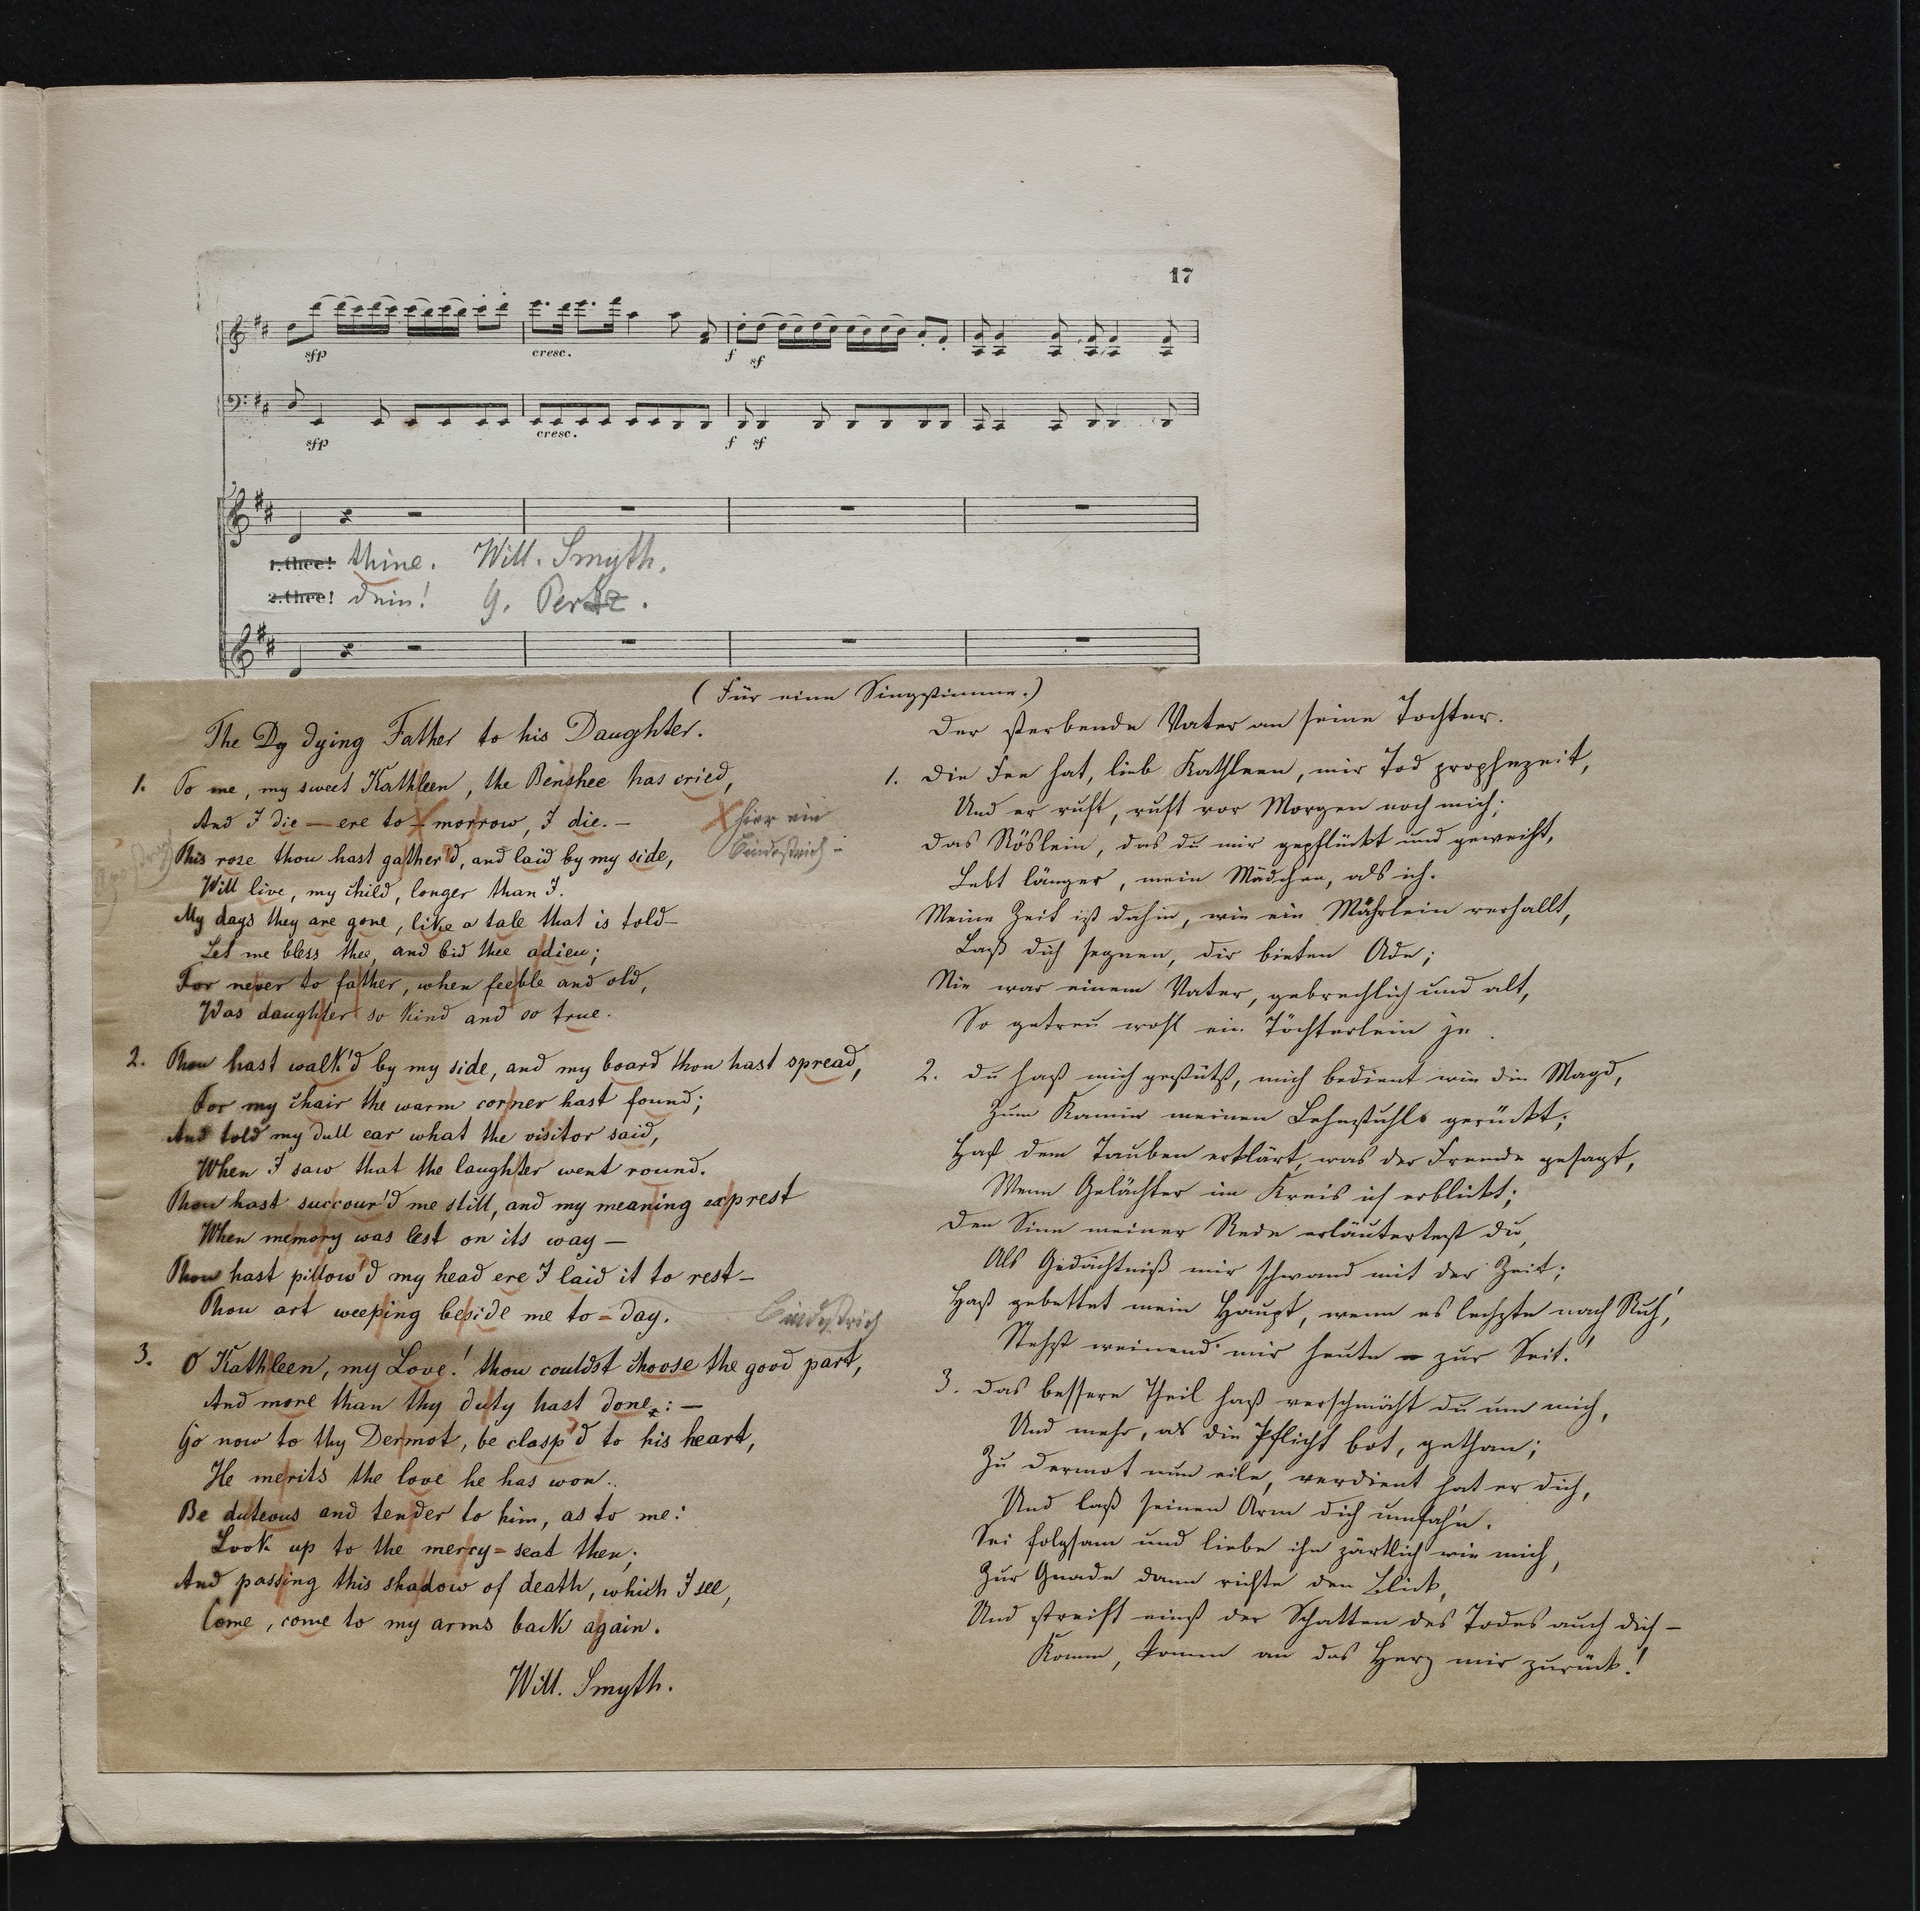 17
sfp cresc. f sf
sfp cresc. f sf
1. thee! thine. Will. Smyth.
2. thee! dein! G. Pertz.
(Für eine Singstimme.)
The Dy dying Father to his Daughter.
1. To me, my sweet Kathleen, the Benshee has cried,
And I die — ere to-morrow, I die. —
hier ein
Bindestrich -
This rose thou hast gather'd, and laid by my side,
Will live, my child, longer than I.
My days they are gone, like a tale that is told —
Let me bless thee, and bid thee adieu;
For never to father, when feeble and old,
Was daughter so kind and so true.
2. Thou hast walk'd by my side, and my board thou hast spread,
For my chair the warm corner hast found;
And told my dull ear what the visitor said,
When I saw that the laughter went round.
Thou hast succour'd me still, and my meaning exprest
When memory was lest on its way —
Thou hast pillow'd my head ere I laid it to rest —
Thou art weeping beside me to-day.
Bindestrich
3. O Kathleen, my Love! thou couldst choose the good part,
And more than thy duty hast done: —
Go now to thy Dermot, be clasp'd to his heart,
He merits the love he has won.
Be duteous and tender to him, as to me:
Look up to the mercy-seat then;
And passing this shadow of death, which I see,
Come, come to my arms back again.
Will. Smyth.
Der sterbende Vater an seine Tochter.
1. Die Fee hat, lieb Kathleen, mir Tod prophezeit,
Und er ruft, ruft vor Morgen noch mich;
Das Röslein, das du mir gepflückt und geweiht,
Lebt länger, mein Mädchen, als ich.
Meine Zeit ist dahin, wie ein Mährlein verhallt,
Laß dich segnen, dir bieten Ade;
Nie war einem Vater, gebrechlich und alt,
So getreu wohl ein Töchterlein je.
2. Du hast mich gestützt, mich bedient wie die Magd,
Zum Kamin meinen Lehnstuhl gerückt;
Hast dem Tauben erklärt, was der Fremde gesagt,
Wenn Gelächter im Kreis ich erblickt;
Den Sinn meiner Rede erläutertest du,
Als Gedächtniß mir schwand mit der Zeit;
Hast gebettet mein Haupt, wenn es lechzte nach Ruh',
Stehst weinend mir heute zur Seit'!
3. Das bessere Theil hast verschmäht du um mich,
Und mehr, als die Pflicht bot, gethan;
Zu Dermot nun eile, verdient hat er dich,
Und laß seinen Arm dich umfahn.
Sei folgsam und liebe ihn zärtlich wie mich,
Zur Gnade dann richte den Blick,
Und streift einst der Schatten des Todes auch dich —
Komm, komm an das Herz mir zurück!